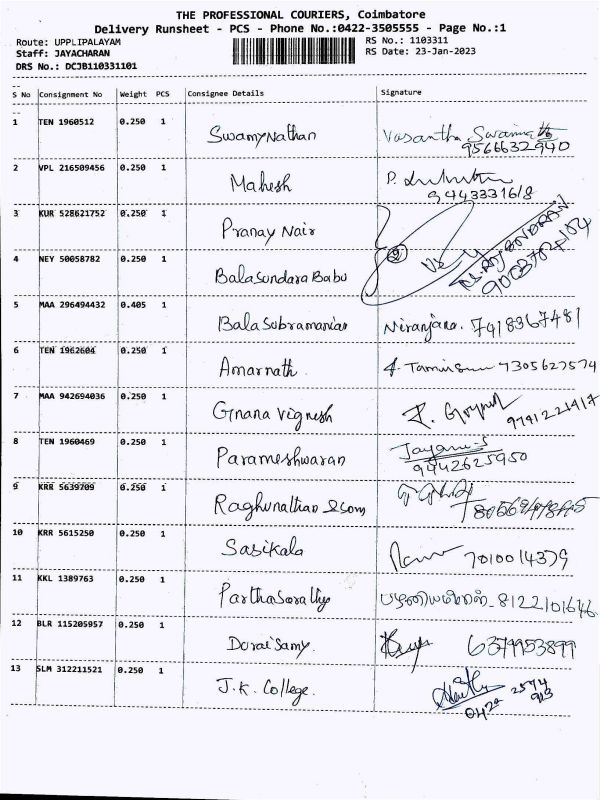 THE PROFESSIONAL COURIERS, Coimbatore
Delivery Runsheet - PCS - Phone No.:0422-3505555 - Page No.:1
Route: UPPLIPALAYAM RS No.: 1103311
Staff: JAYACHARAN RS Date: 23-Jan-2023
DRS No.: DCJB110331101
S No Consignment No Weight PCS Consignee Details Signature
1 TEN 1960512 0.250 1 SwamyNathan Vasantha Swamina
9566632940
2 VPL 216509456 0.250 1 Mahesh P.
9443331618
3 KUR 528621752 0.250 1 Pranay Nair
4 NEY 50058782 0.250 1 BalaSundara Babu 2
5 MAA 296494432 0.405 1 BalaSubramanian Niranjana. 7418367481
6 TEN 1962604 0.250 1 Amarnath. 7305627574
7 MAA 942694036 0.250 1 Gnana Vignesh 9791221417
8 TEN 1960469 0.250 1 Parameshwaran Jayani-S
9442625950
9 KRR 5639709 0.250 1 Raghunathan &som
10 KRR 5615250 0.250 1 Sasikala 7010014379
11 KKL 1389763 0.250 1 Parthasarathy 8122101646
12 BLR 115205957 0.250 1 Doraisamy. 6379953899
13 SLM 312211521 0.250 1 J.K. College.
0422 2574
913